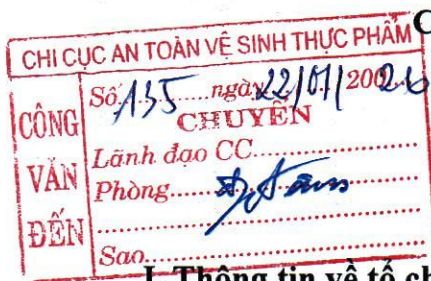 CHI CỤC AN TOÀN VỆ SINH THỰC PHẨM C
CÔNG VĂN ĐẾN
Số 135 ngày 22/01/2002.6
CHUYỂN
Lãnh đạo CC
Phòng
Sao
I. Thông tin về tổ ch